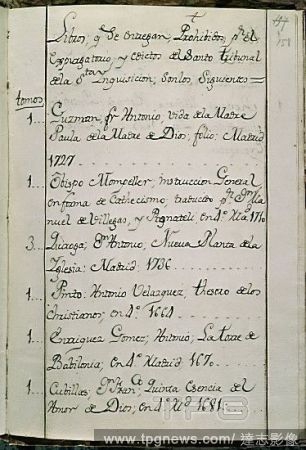 Libros, q.e Se entregan, Prohibidos, p.r el
Expurgatorio, y edictos del Santo tribunal
de la S.ta Inquisicion; son los Siguientes =
tomos
1... Guzman, fr Antonio, vida de la Madre
Paula de la Madre de Dios; folio; Madrid
1727
1... Obispo Mompeller; instruccion General
en forma de Cathecismo, traducto p.r D.n Ma
nuel de Villegas, y Pignateli en 4.º Md 1710
3... D.n Antonio; Nueva Planta de la
Iglesia; Madrid 1736
1... Pinto: Antonio Velazquez; thesoro de los
Christianos; en 4.º 1664
1... Enrriquez Gomez; Antonio; La torre de
Babilonia; en 4.º Madrid 1670
1... Cubillas; D.n Fran.co Quinta esencia del
Amor de Dios; en 4.º Md 1681
151
TPG
www.tpgnews.com/達志影像